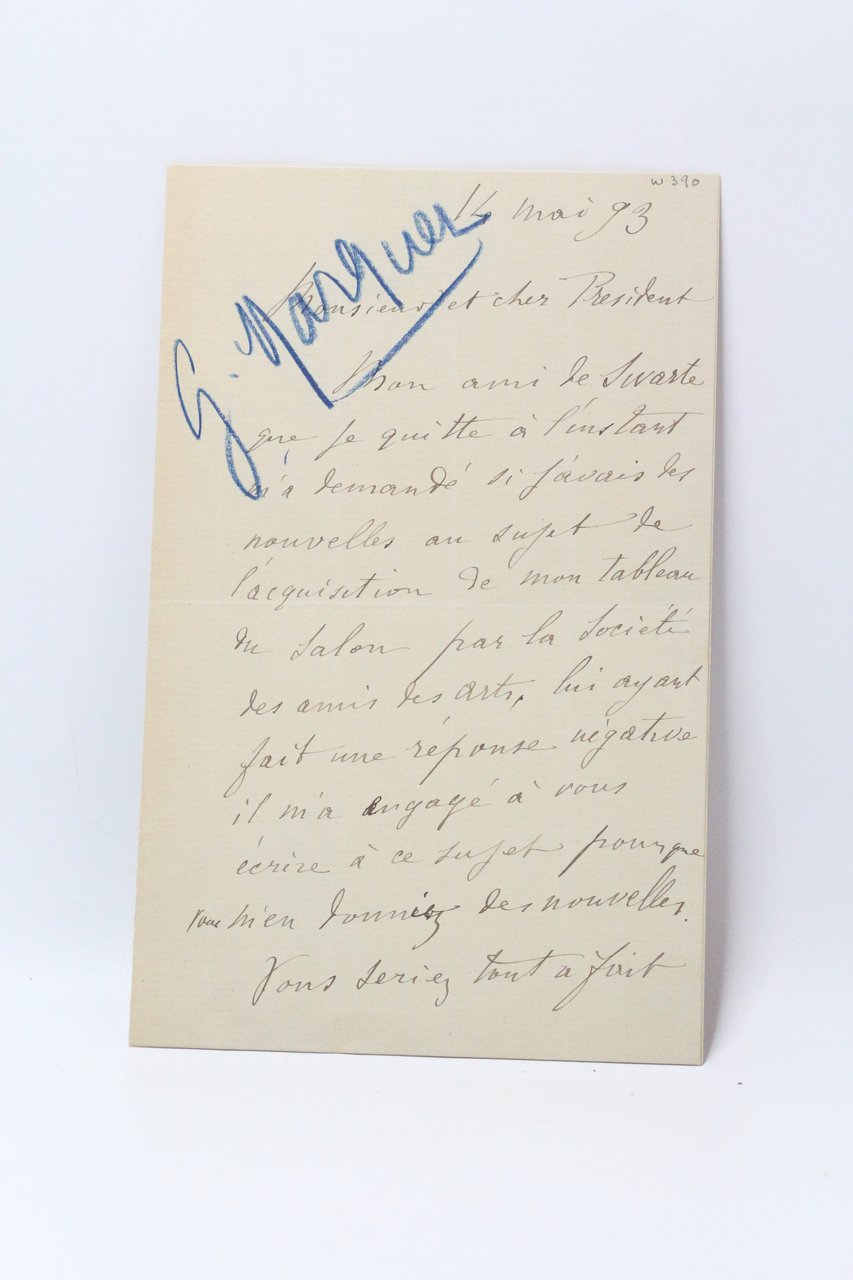 W 390
14 mai 93
G. Marquez
Monsieur et cher President
Mon ami de Swarte
que je quitte à l'instant
m'a demandé si j'avais des
nouvelles au sujet de
l'acquisition de mon tableau
du salon par la société
des amis des arts, lui ayant
fait une réponse négative
il m'a engagé à vous
écrire à ce sujet pour que
vous m'en donniez des nouvelles.
Vous seriez tout à fait